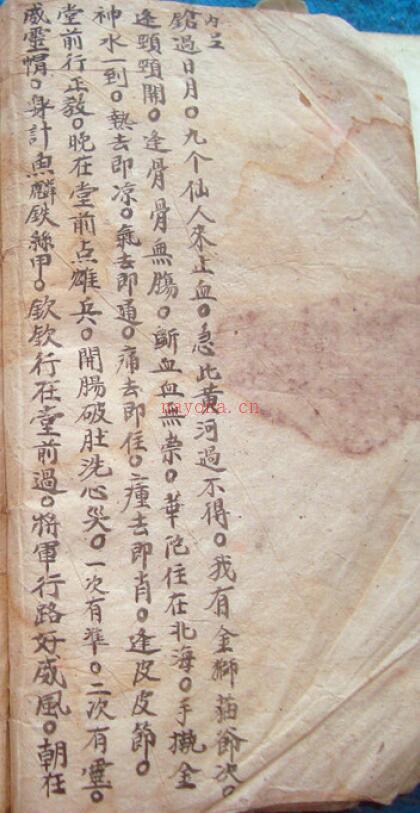 鎗過日月。九个仙人來止血。急比黄河過不得。我有金獅爺次。
逢頸頸開。逢骨骨無腸。斷血血無崇。華佗住在北海。手金
神水一到。熱去即凉。氣去即通。痛去即住。瘇去即肖。逢皮皮節。
堂前行正教。晚在堂前点雄兵。開腸破肚洗心哭。一次有準。二次有靈。
威靈帽。身計魚鱗鉄絲甲。欽欽行在堂前過。將軍行路好威風。朝在
nayona.cn